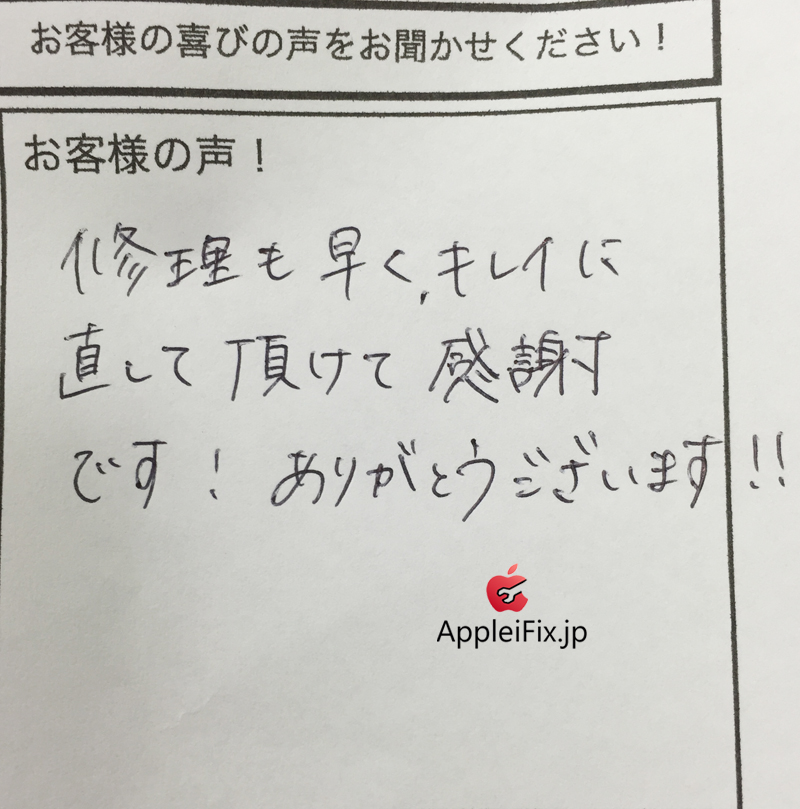 お客様の喜びの声をお聞かせください！
お客様の声！
修理も早く、キレイに
直して頂けて感謝
です！ありがとうございます!!
AppleiFix.jp